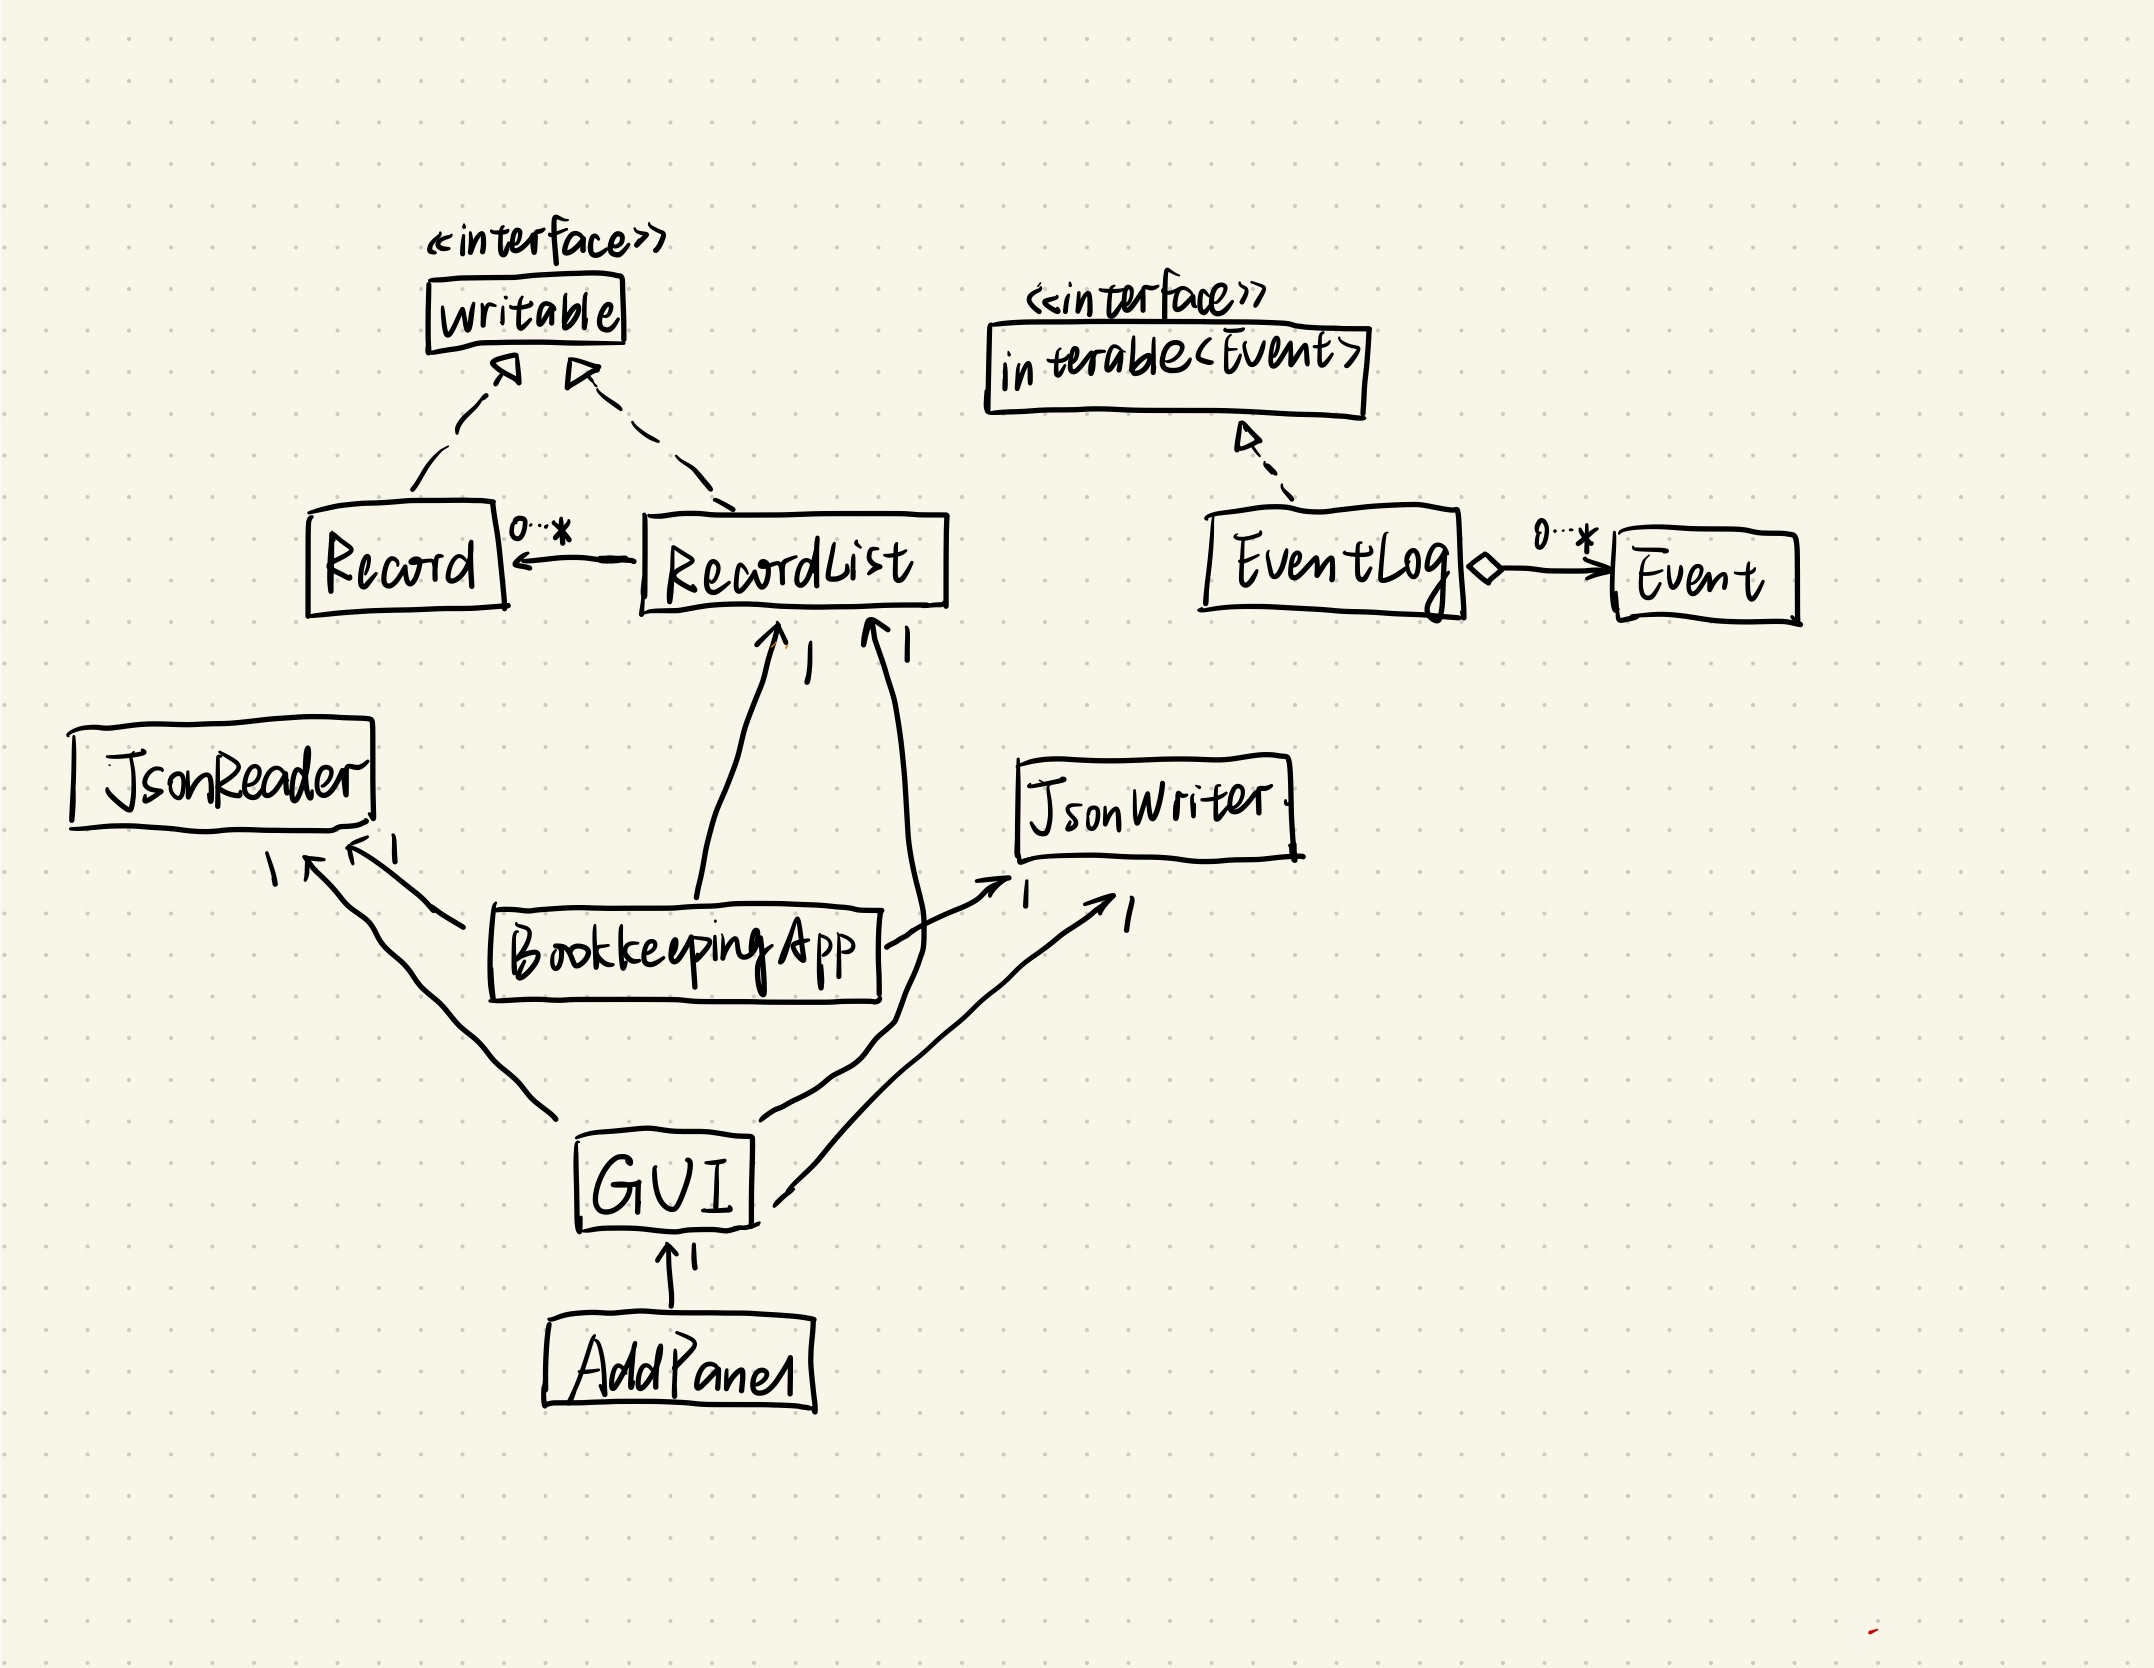 <<interface>>
writable
<<interface>>
interable<Event>
Record
0...*
RecordList
EventLog
0...*
Event
1
1
JsonReader
JsonWriter
1
1
1
1
BookkeepingApp
GUI
1
AddPanel